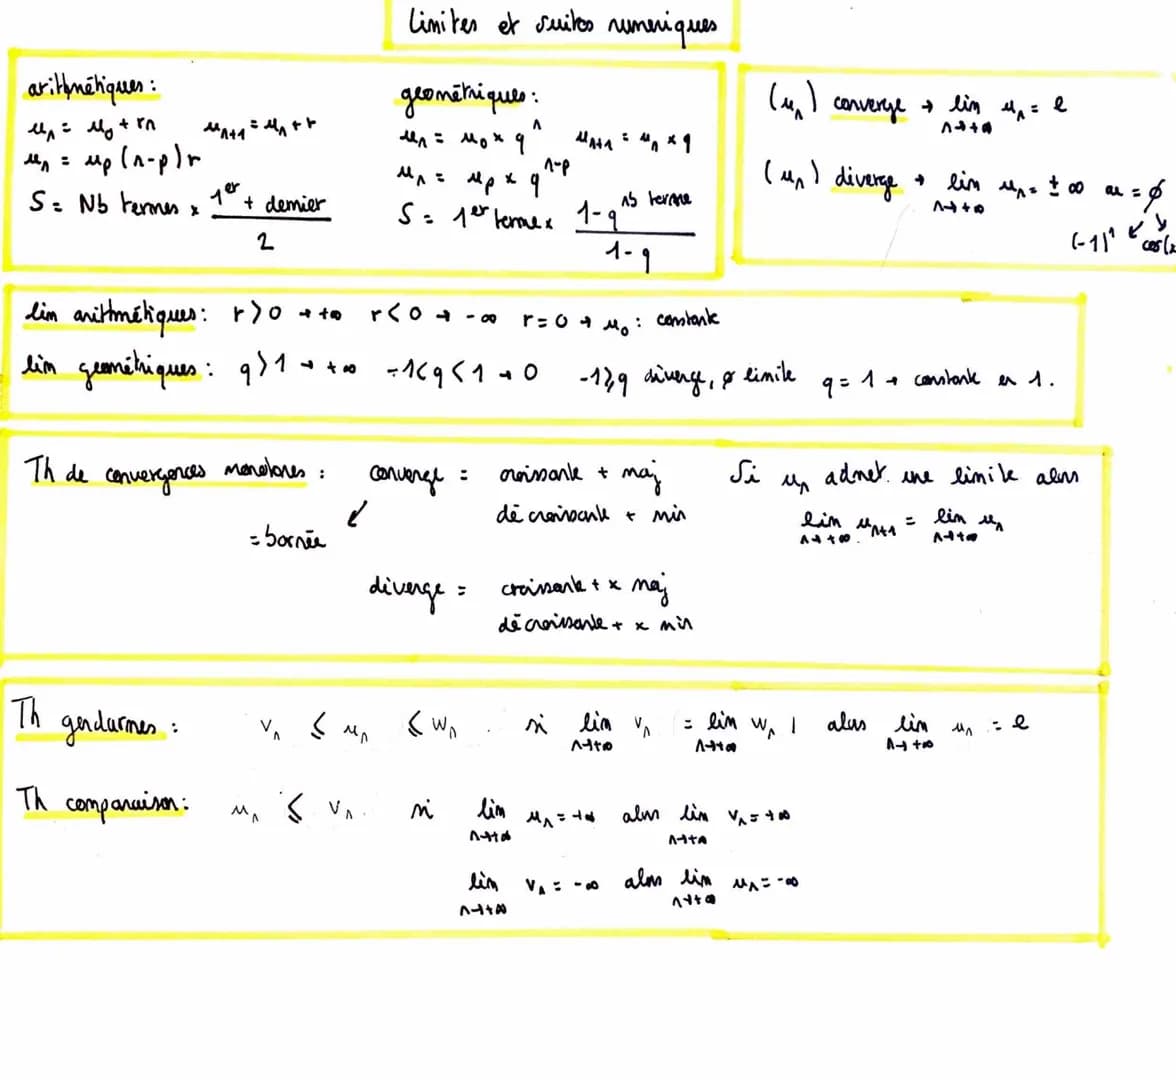 limites et suites numeriques
arithmétiques :
uₙ = u₀ + rn uₙ₊₁ = uₙ + r
uₙ = up (n-p) r
S = Nb termes x (1er + dernier) / 2
géométriques :
uₙ = u₀ x qⁿ uₙ₊₁ = uₙ x q
uₙ = up x qⁿ⁻ᵖ
S = 1er terme x (1-q^nb terme) / (1-q)
(uₙ) converge → lim uₙ = l
n→+∞
(uₙ) diverge → lim uₙ = ± ∞ ou = ∅
n→+∞
(-1)ⁿ cos(
lim arithmétiques : r > 0 → +∞ r < 0 → -∞ r = 0 → u₀ : constante
lim géométriques : q > 1 → +∞ -1 < q < 1 → 0 -1 ≥ q diverge, ∅ limite q = 1 → constante en 1.
Th de convergences monotones : converge = croissante + maj
décroissante + min
= bornée
diverge = croissante + x maj
décroissante + x min
Si uₙ admet une limite alors
lim uₙ₊₁ = lim uₙ
n→+∞ n→+∞
Th gendarmes : vₙ ≤ uₙ ≤ wₙ . si lim vₙ = lim wₙ l alors lim uₙ = l
n→+∞ n→+∞ n→+∞
Th comparaison : uₙ ≤ vₙ . si lim uₙ = +∞ alors lim vₙ = +∞
n→+∞ n→+∞
lim vₙ = -∞ alors lim uₙ = -∞
n→+∞ n→+∞